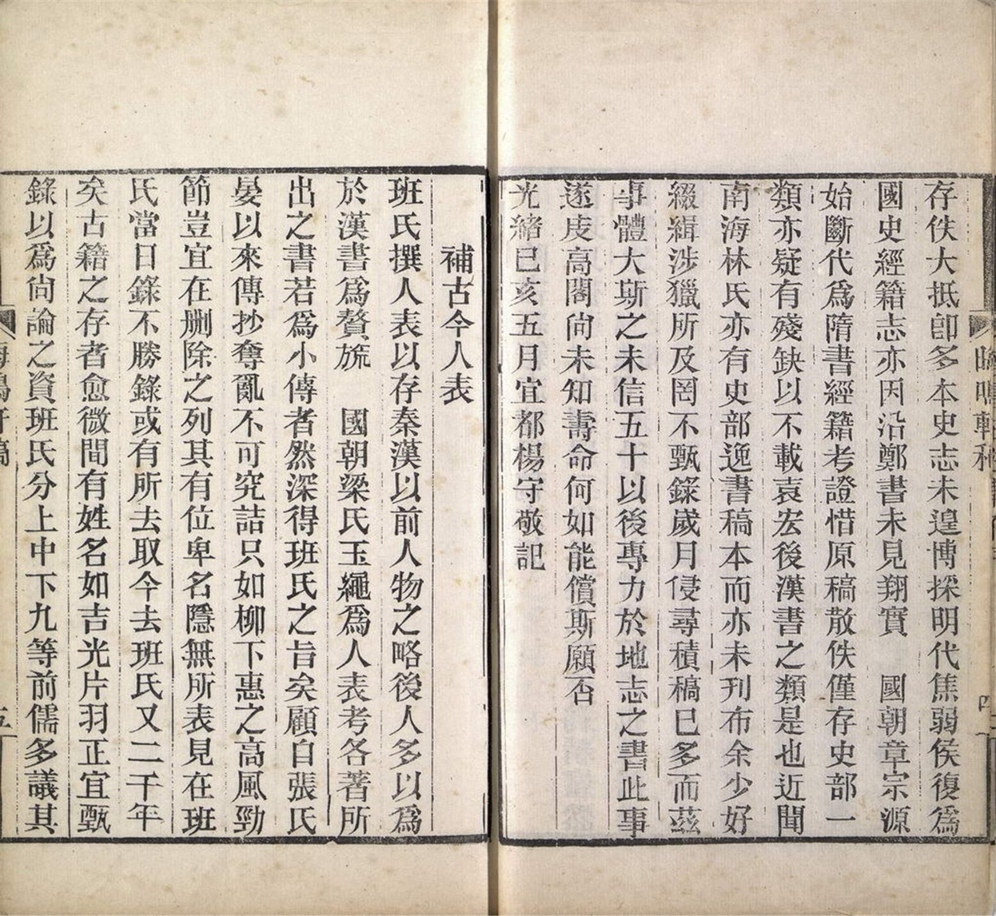 存佚大抵卽多本史志未遑博採明代焦弱侯復爲
國史經籍志亦因沿鄭書未見翔實　國朝章宗源
始斷代爲隋書經籍考證惜原稿散佚僅存史部一
類亦疑有殘缺以不載袁宏後漢書之類是也近聞
南海林氏亦有史部逸書稿本而亦未刊布余少好
綴緝涉獵所及罔不甄錄歲月侵尋積稿已多而茲
事體大斯之未信五十以後專力於地志之書此事
遂庋高閣尙未知壽命何如能償斯願否
光緒已亥五月宜都楊守敬記
四
補古今人表
班氏撰人表以存秦漢以前人物之略後人多以爲
於漢書爲贅旒　國朝梁氏玉繩爲人表考各著所
出之書若爲小傳者然深得班氏之旨矣顧自張氏
晏以來傳抄奪亂不可究詰只如柳下惠之高風勁
節豈宜在刪除之列其有位卑名隱無所表見在班
氏當日錄不勝錄或有所去取今去班氏又二千年
矣古籍之存者愈微間有姓名如吉光片羽正宜甄
錄以爲尙論之資班氏分上中下九等前儒多議其
五